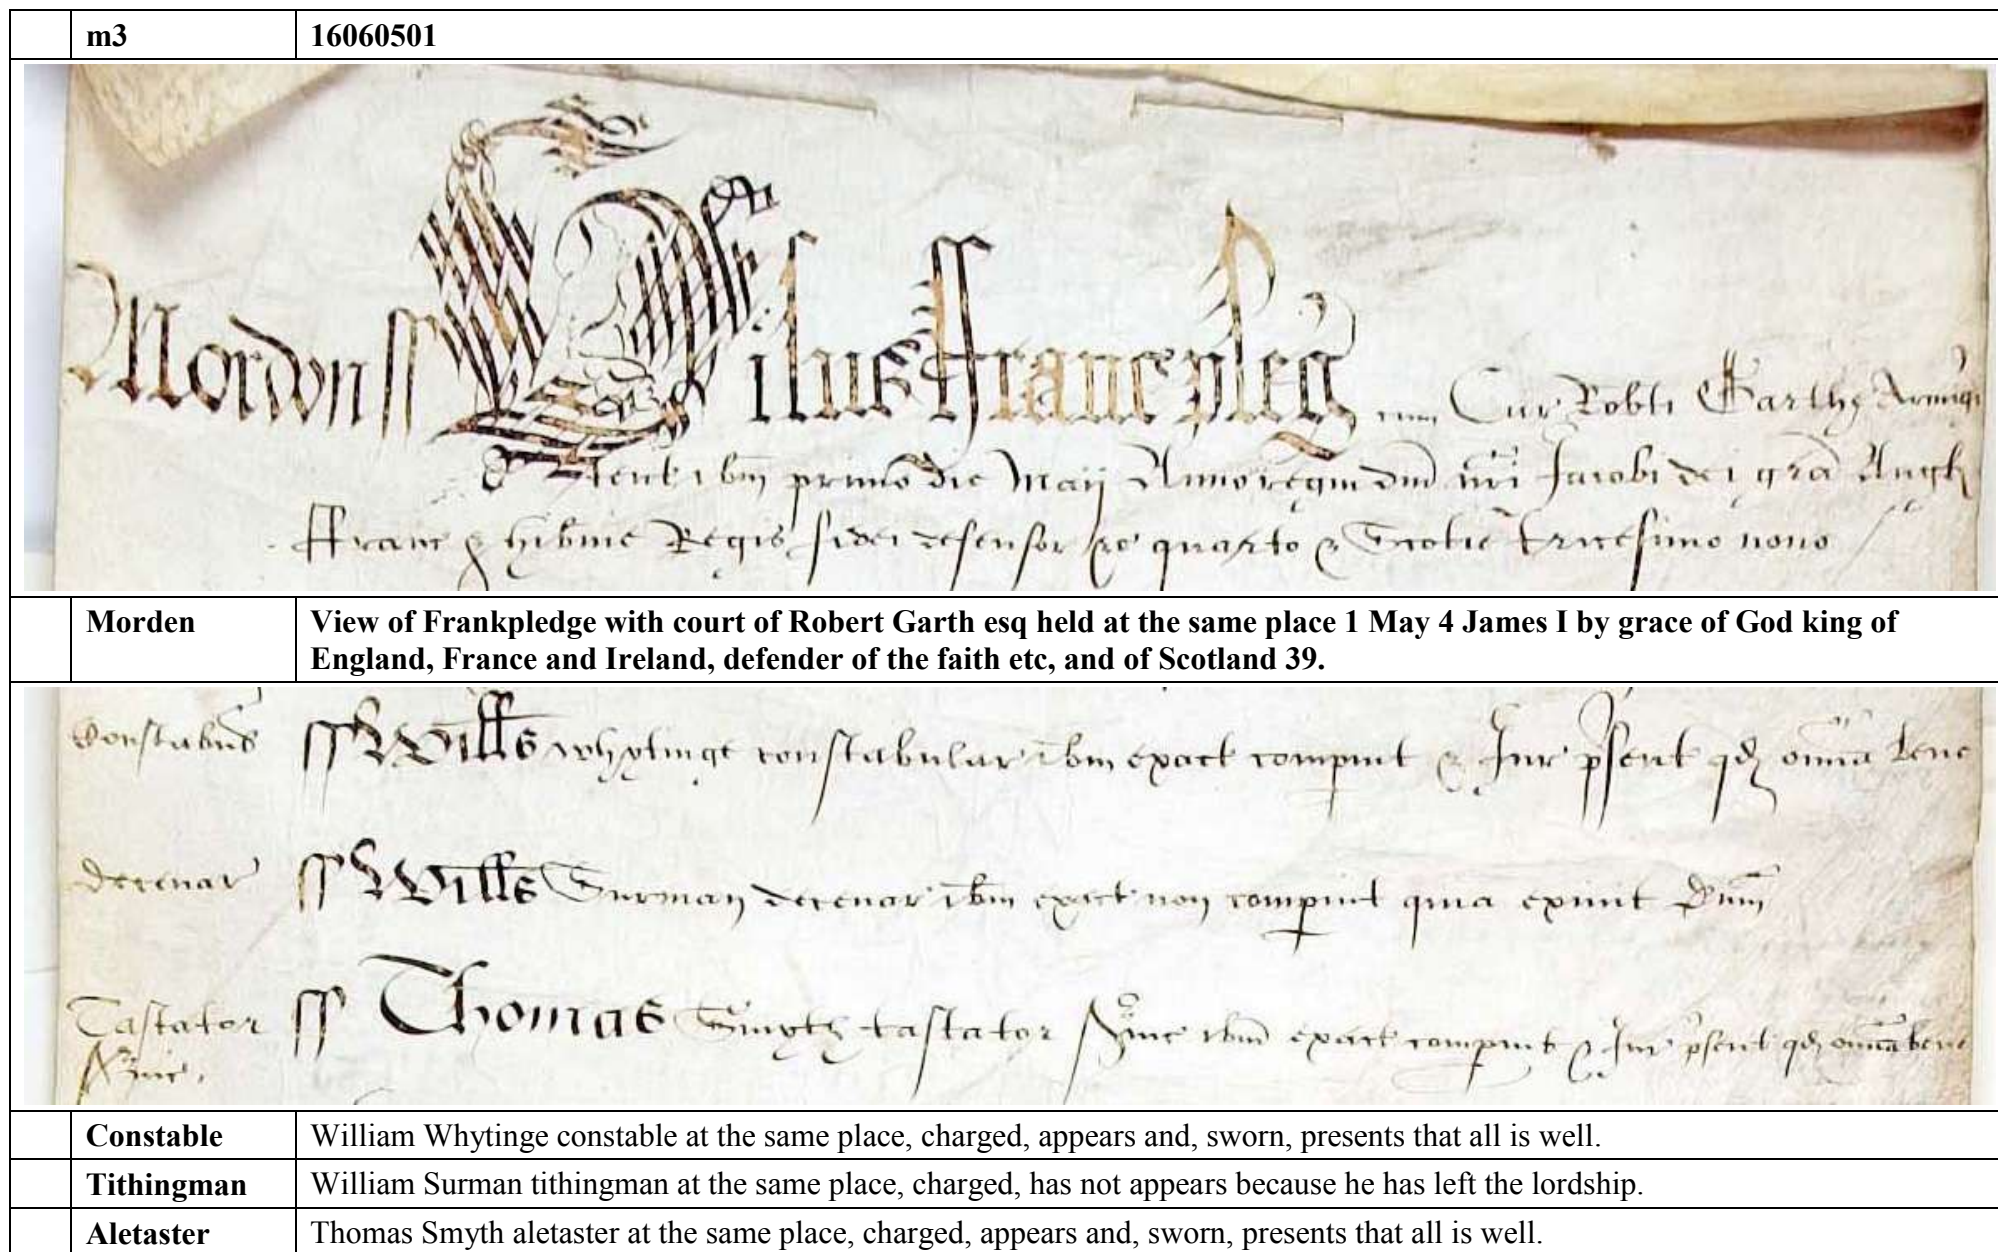 m3 16060501
Mordon ss Visus Franc pleg cum Cur Robti Garthe Armigi
Tent ibm primo die Maij Anno regni dni nri Jacobi dei gra Angli
Franc & hibnie Regis fidei defensor &c quarto & Scotie tricesimo nono
Morden View of Frankpledge with court of Robert Garth esq held at the same place 1 May 4 James I by grace of God king of
England, France and Ireland, defender of the faith etc, and of Scotland 39.
Constabus ss Willus whytinge constabular ibm exact compuit & Jur psent qd omia bene
decenar ss Willus Surman decenar ibm exact non compuit quia exiuit Dnm
Tastator ss Thomas Smyth tastator Sruic ibm exact compuit & Jur psent qd omia bene
Sruic
Constable William Whytinge constable at the same place, charged, appears and, sworn, presents that all is well.
Tithingman William Surman tithingman at the same place, charged, has not appears because he has left the lordship.
Aletaster Thomas Smyth aletaster at the same place, charged, appears and, sworn, presents that all is well.